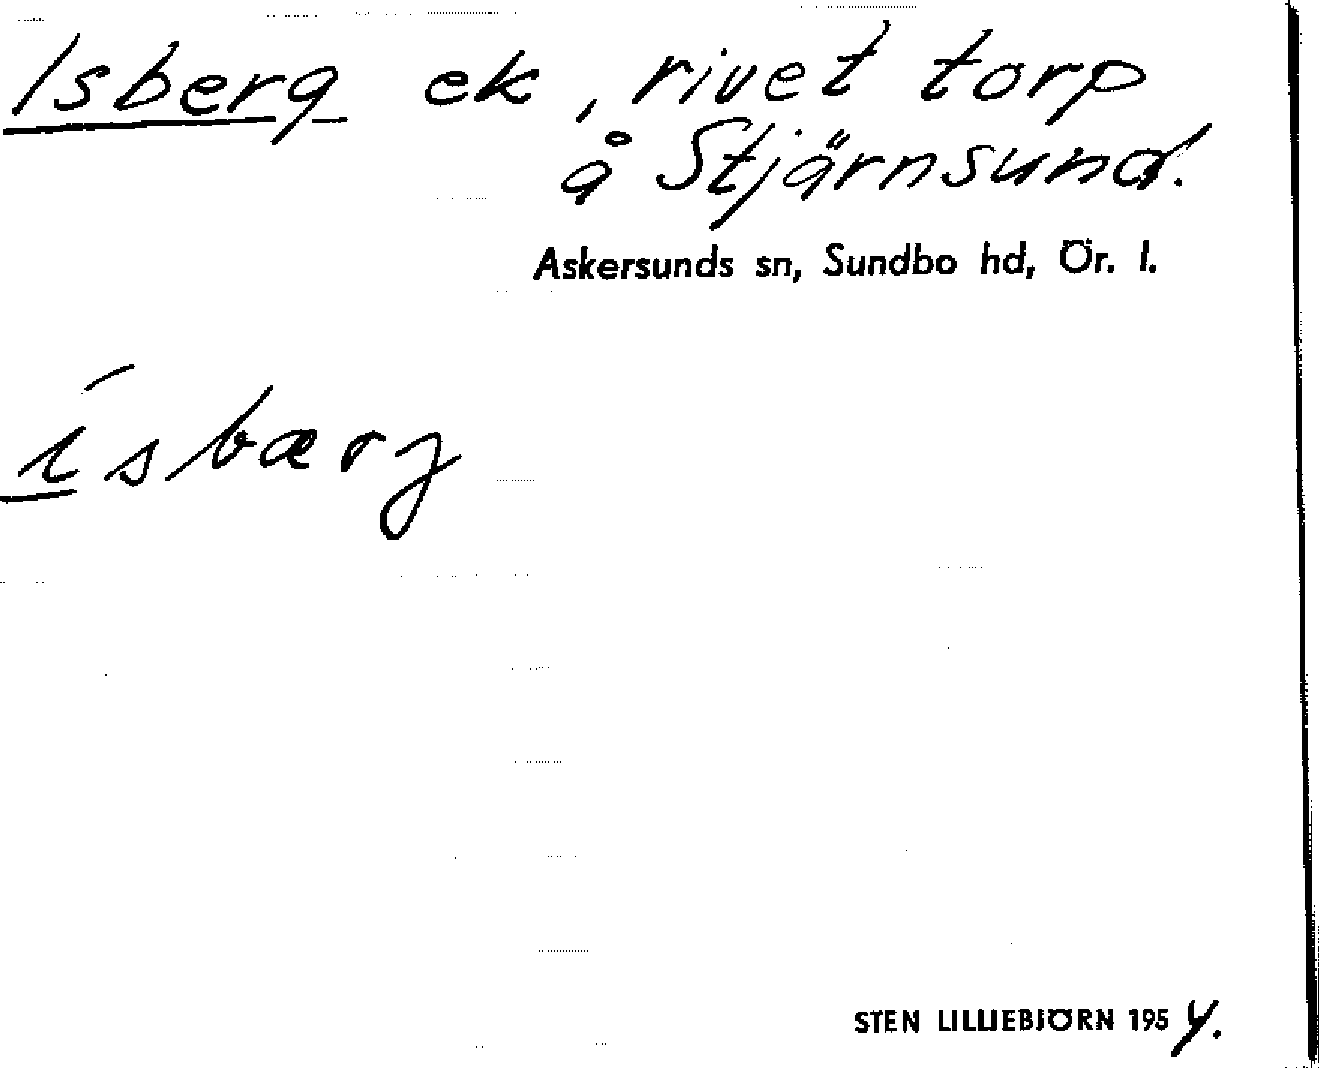 Isberg ek, rivet torp
å Stjärnsund.
Askersunds sn, Sundbo hd, Ör. l.
ísbærg
STEN LILLIEBJÖRN 1954.